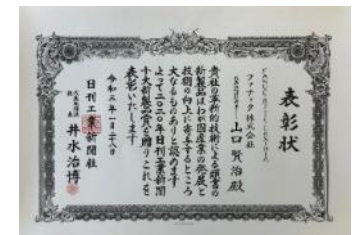 表彰状
ファナック株式会社
山口賢治殿
貴社の革新的技術による頭書の
新製品はわが国産業の発展と
技術の向上に寄与するところ
大なるものありと認めます
よって二〇二〇年日刊工業新聞
十大新製品賞を贈りこれを
表彰いたします
令和三年一月二八日
日刊工業新聞社
井水治博